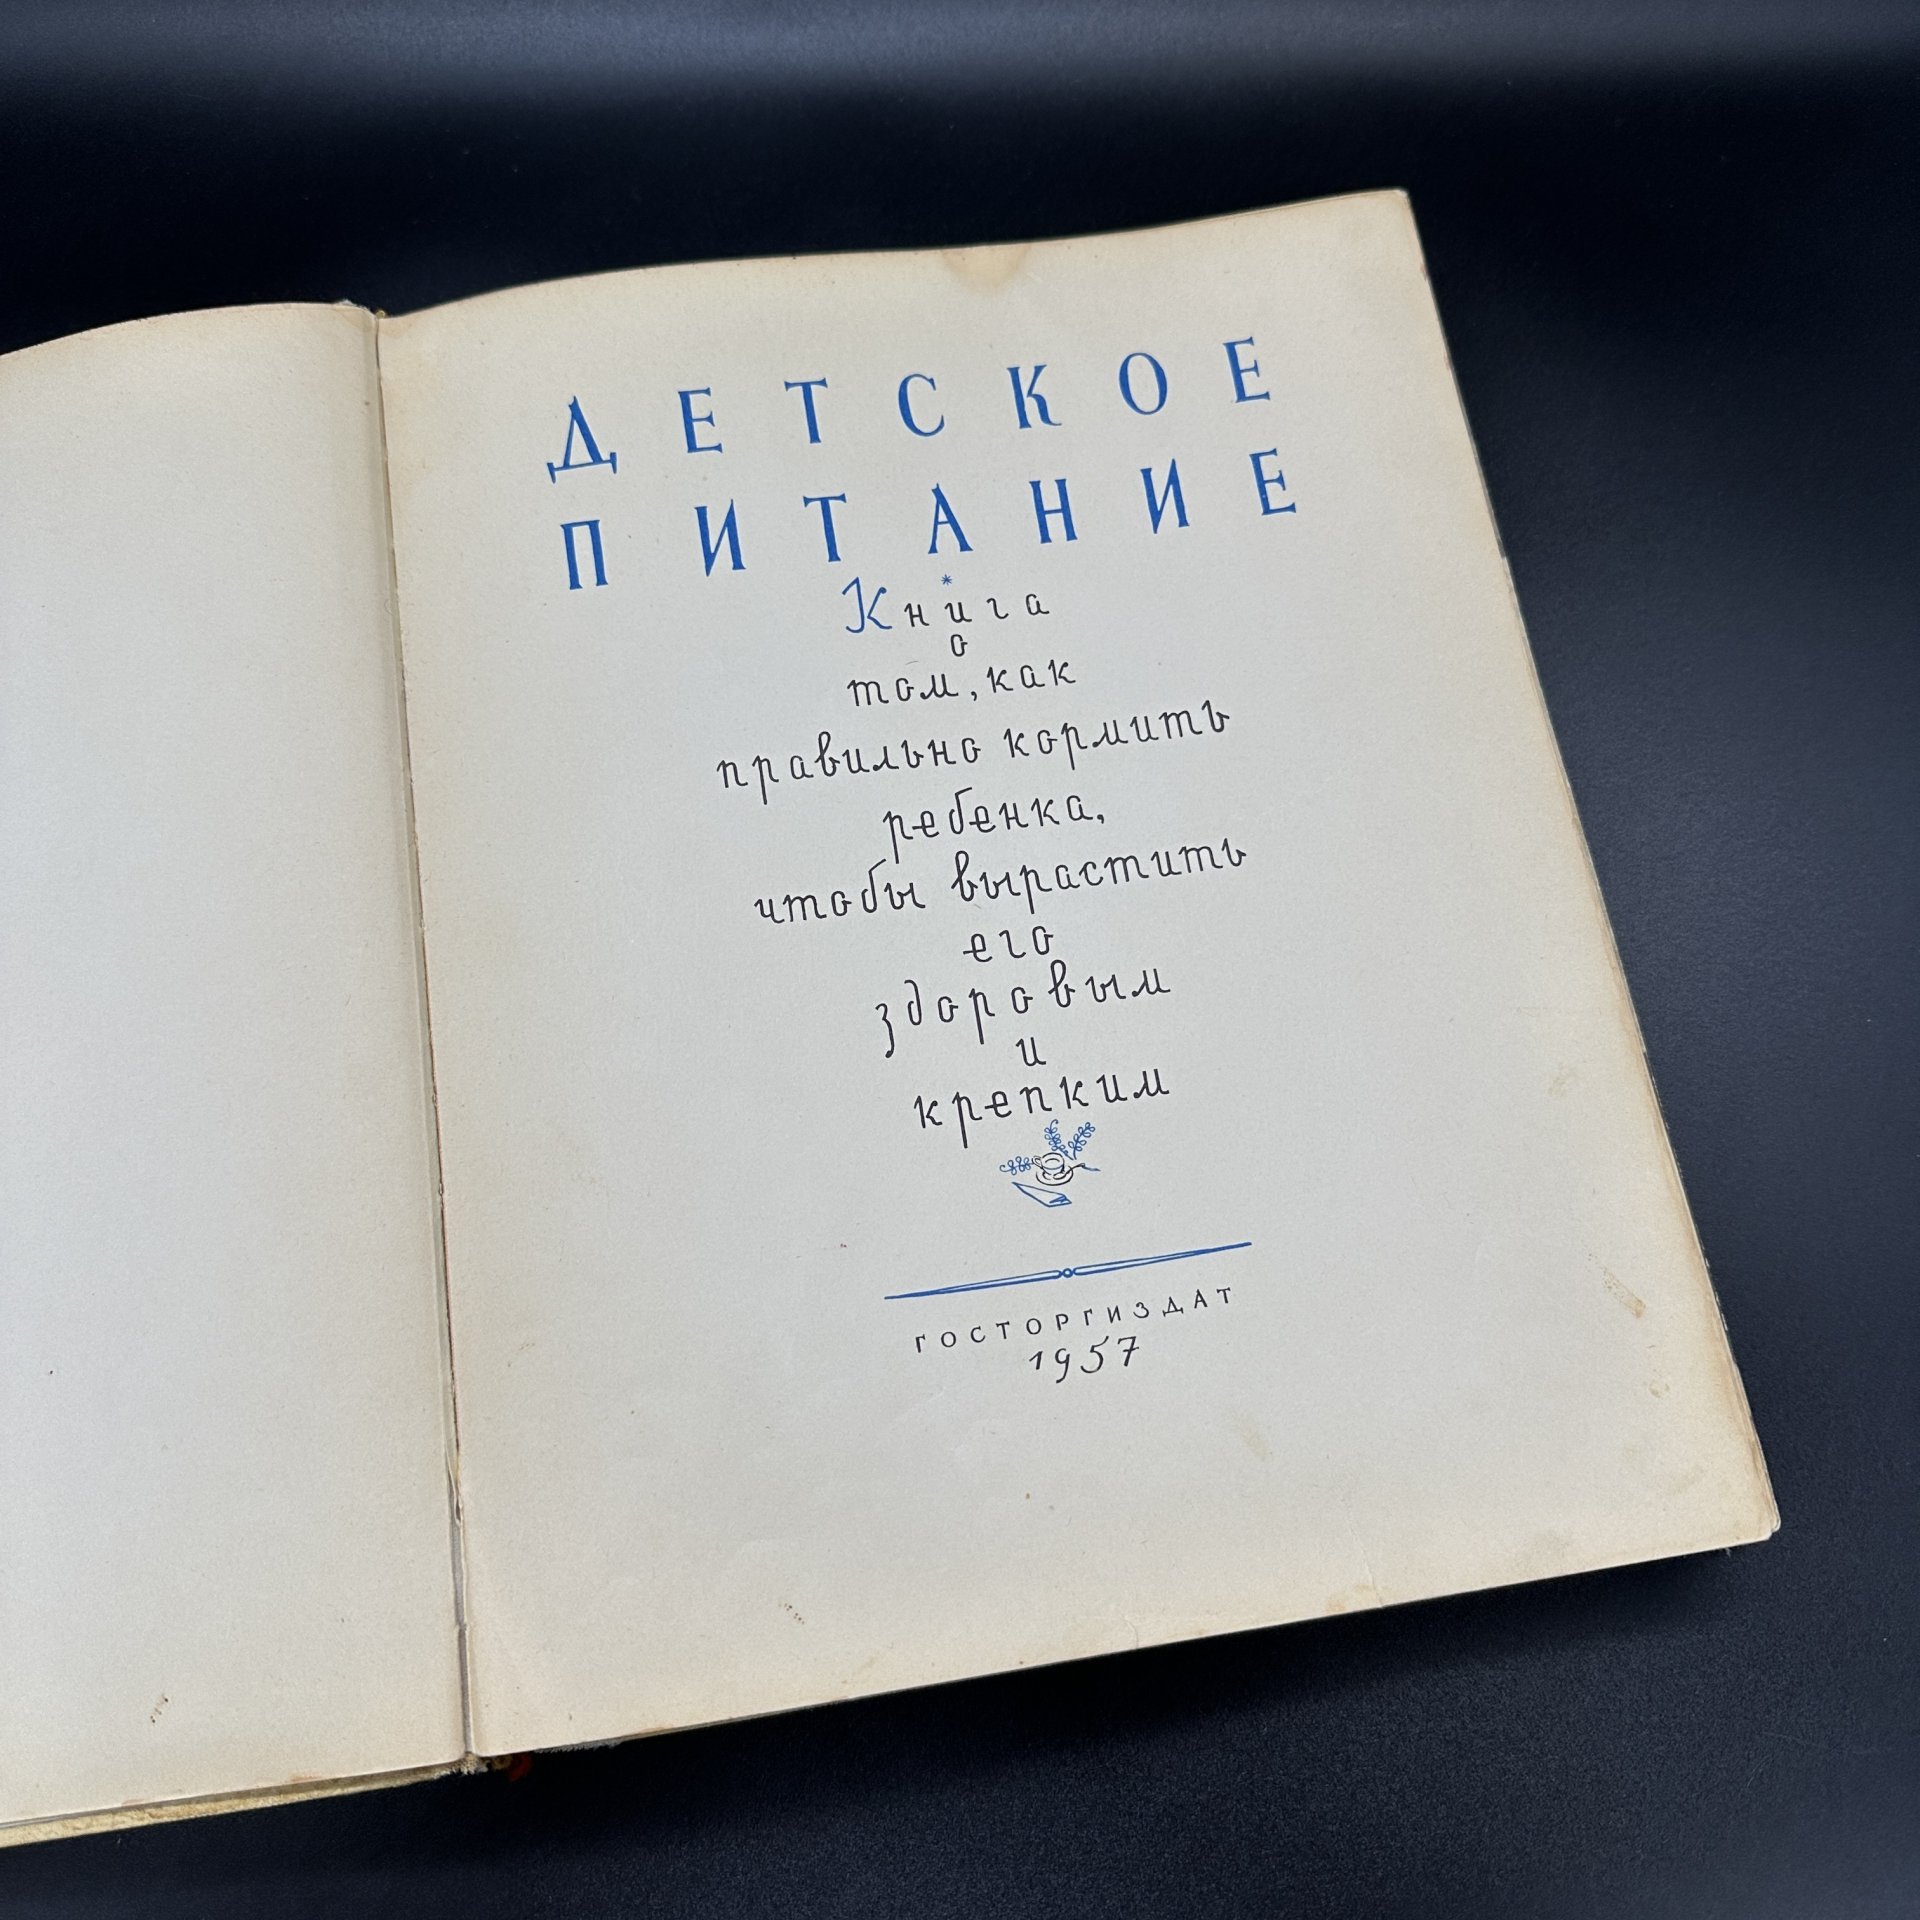 ДЕТСКОЕ
ПИТАНИЕ
*
Книга
о
том, как
правильно кормить
ребенка,
чтобы вырастить
его
здоровым
и
крепким
ГОСТОРГИЗДАТ
1957